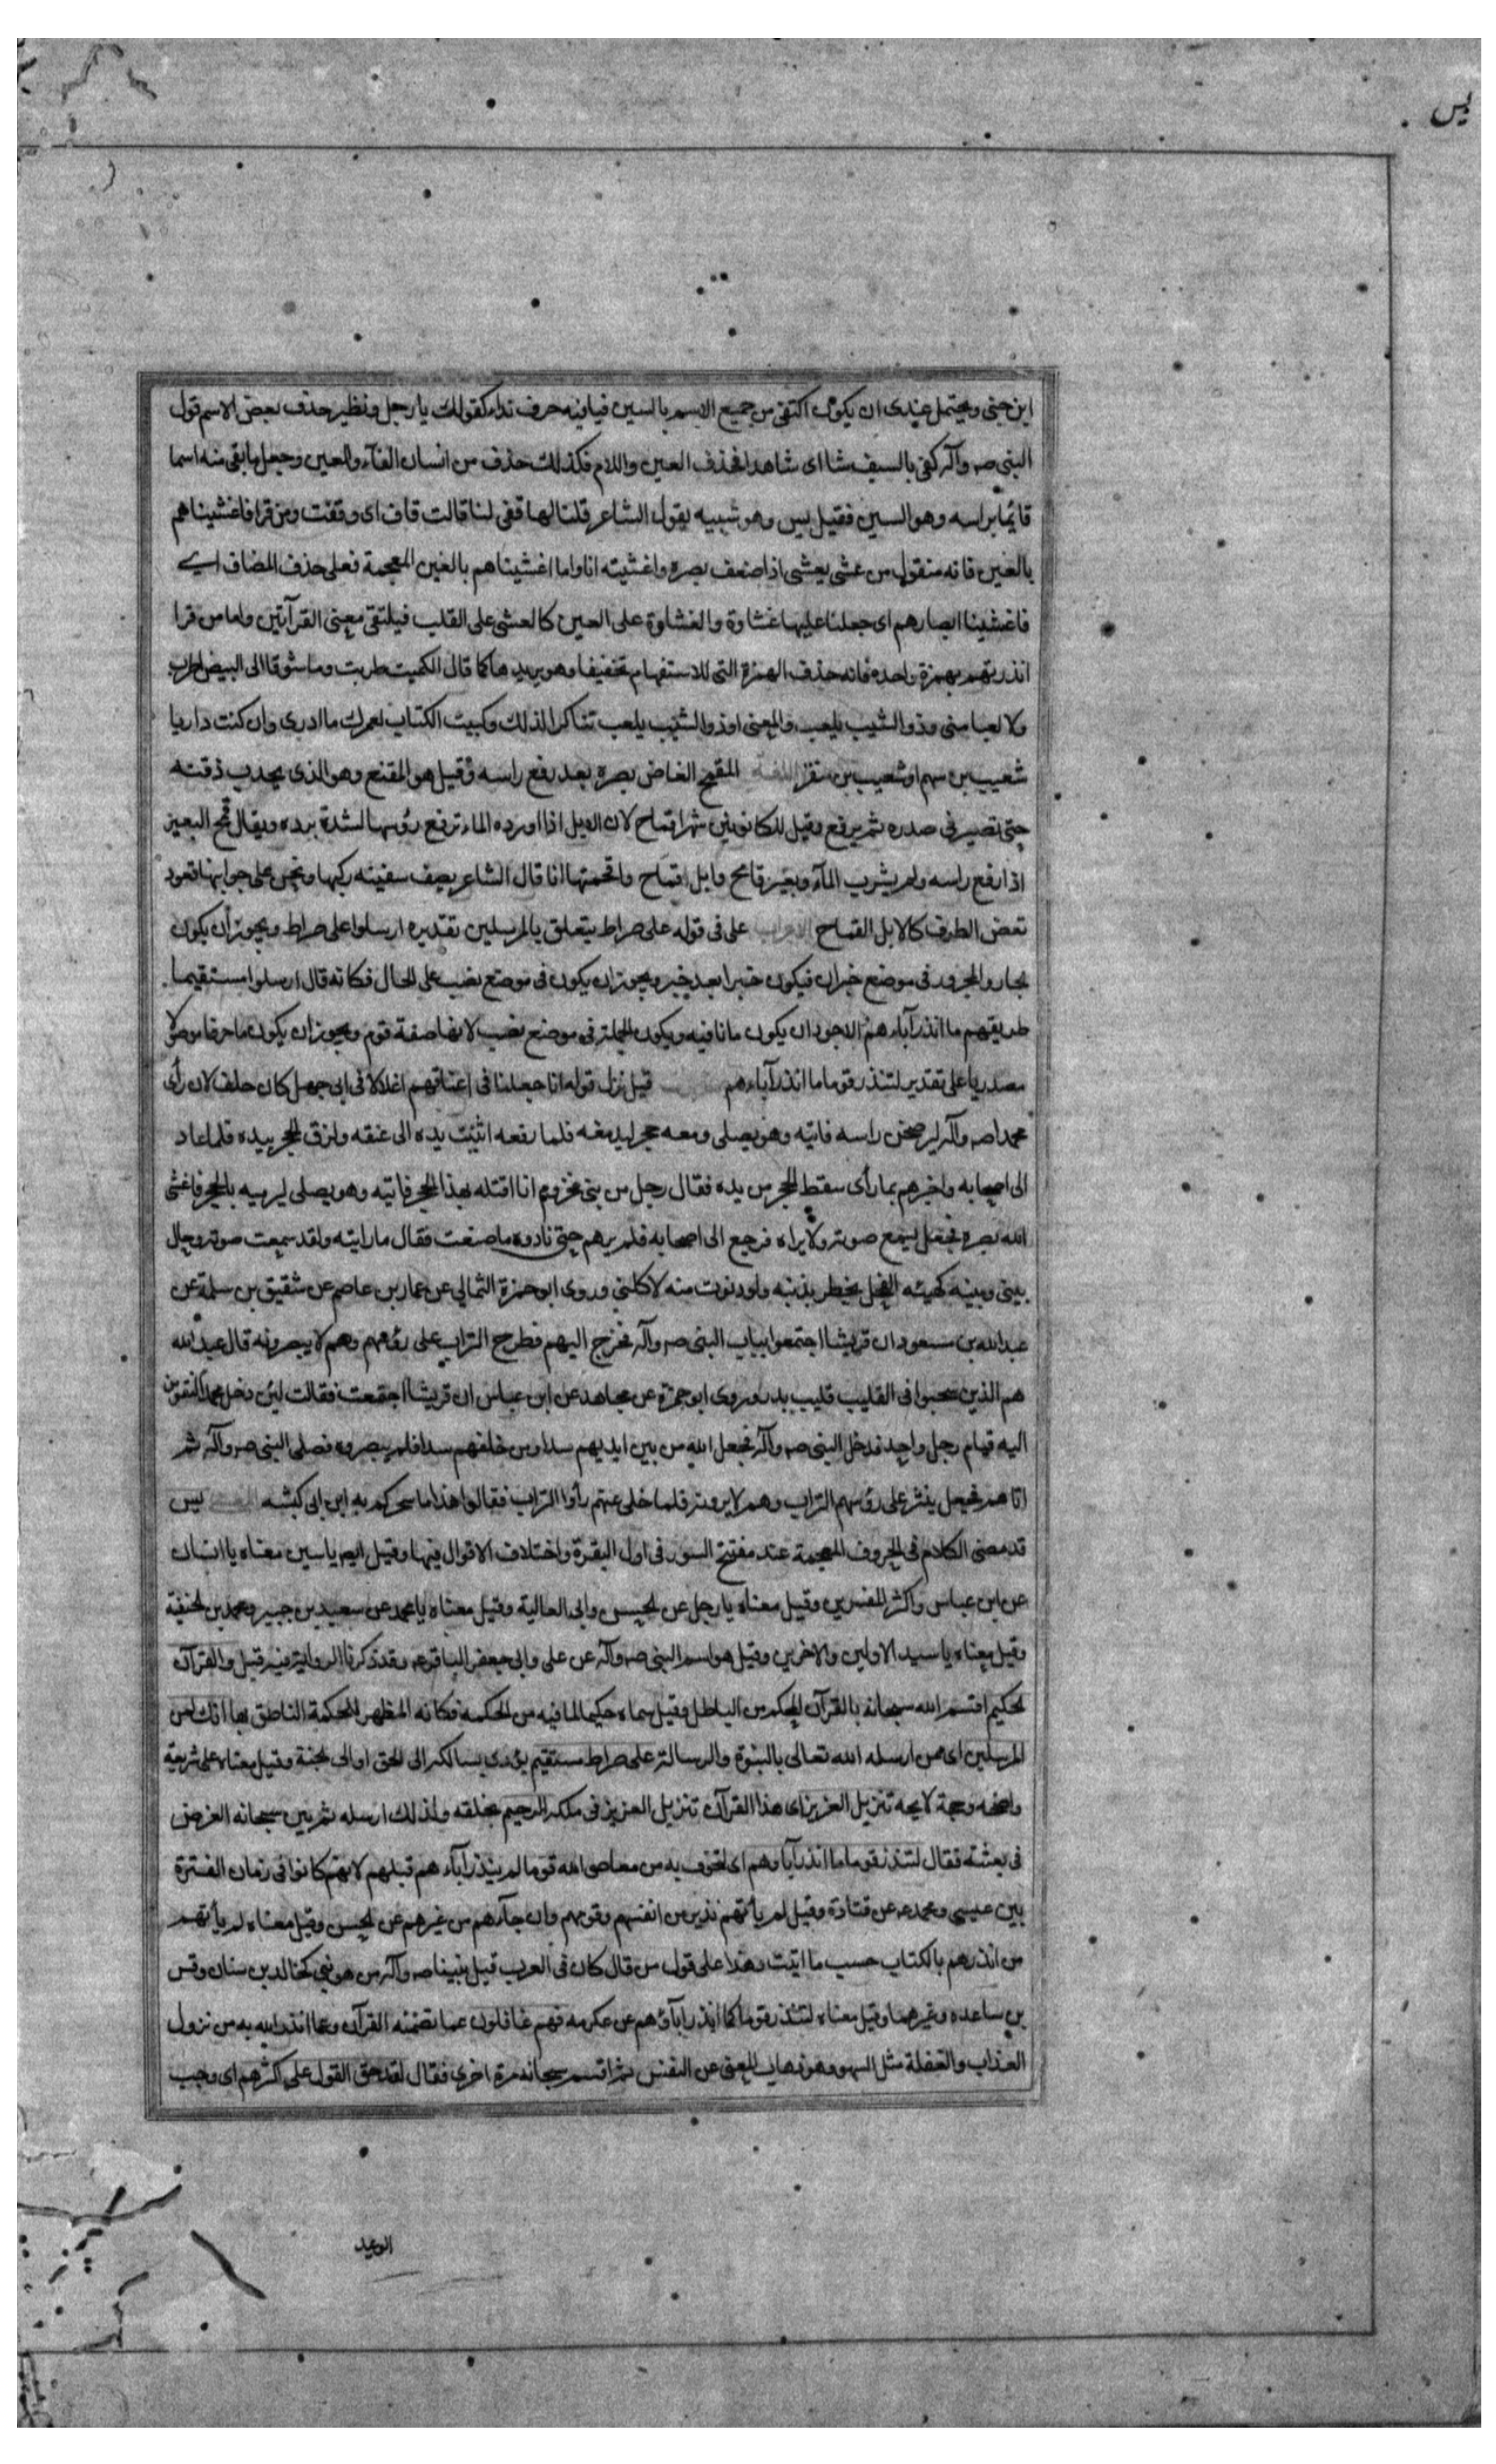 يس
ابن جنى ويحتمل عندى ان يكون اكتفى من جميع الاسم بالسين فيا فيه حرف نداء كقولك يا رجل ونظير حذف بعض الاسم قول
النبى صه وآله كفى بالسيف شا اى شاهدا فحذف العين واللام فكذلك حذف من انسان الفآء والعين وجعل ما بقى منه اسما
قايما براسه وهو السين فقيل يس وهو شبيه بقول الشاعر قلنا لها قفى لنا قالت قاف اى وقفت ومن قرا فاغشيناهم
بالعين فانه منقول من عشى يعشى اذا ضعف بصره واغشيته انا واما اغشيناهم بالغين المعجمة فعلى حذف المضاف اى
فاغشينا ابصارهم اى جعلنا عليها غشاوة والغشاوة على العين كالعشى على القلب فيلتقى معنى القرآتين واما من قرا
انذرتهم بهمزة واحده فانه حذف الهمزة التى للاستفهام تخفيفا وهو يريدها كما قال الكميت طربت وما شوقا الى البيض اطرب
ولا لعبا منى وذو الشيب يلعب والمعنى اوذو الشيب يلعب تناكرا لذلك وكبيت الكتاب لعمرك ما ادرى وان كنت داريا
شعيب بن سهم او شعيب بن منقر اللغة المقمح الغاض بصره بعد رفع راسه وقيل هو المقنع وهو الذى يجذب ذقنه
حتى تصير فى صدره ثم يرفع وقيل للكانونين شهرا قماح لان الابل اذا اورده الماء ترفع رؤسها لشدة برده ويقال قمح البعير
اذا رفع راسه ولم يشرب المآء وبعير قامح وابل قماح واقمحتها انا قال الشاعر يصف سفينه ركبها ونحن على جوانبها قعود
نغض الطرف كالابل القماح الاعراب على فى قوله على صراط يتعلق بالمرسلين تقديره ارسلوا على صراط ويجوز ان يكون
الجار والمجرور فى موضع خبران فيكون خبرا بعد خبر ويجوز ان يكون فى موضع نصب على الحال فكانه قال ارسلوا مستقيما
طريقهم ما انذر آباءهم الاجود ان يكون ما نافيه ويكون الجملة فى موضع نصب لانها صفة قوم ويجوز ان يكون ما حرفا موصولا
مصدريا على تقدير لتنذر قوما ما انذر آباءهم قيل نزل قوله انا جعلنا فى اعناقهم اغلالا فى ابى جهل كان حلف لان رأى
محمدا صه وآله ليرضخن راسه فاتيه وهو يصلى ومعه حجر ليدمغه فلما رفعه اثنيت يده الى عنقه ولزق الحجر بيده فلما عاد
الى اصحابه واخبرهم بما رأى سقط الحجر من يده فقال رجل من بنى مخزوم انا اقتله بهذا الحجر فاتيه وهو يصلى ليرميه بالحجر فاغشى
الله بصره فجعل يسمع صوته ولا يراه فرجع الى اصحابه فلم يرهم حتى نادوه ما صنعت فقال ما رايته ولقد سمعت صوته وحال
بينى وبينه كهيئه الفحل يخطر بذنبه ولو دنوت منه لاكلنى وروى ابو حمزة الثمالى عن عمار بن عاصم عن شقيق بن سلمة عن
عبد الله بن مسعود ان قريشا اجتمعوا بباب النبى صه وآله فخرج اليهم فطرح التراب على رؤسهم وهم لا يبصرونه قال عبد الله
هم الذين سحبوا فى القليب قليب بدر وروى ابو حمزة عن مجاهد عن ابن عباس ان قريشا اجتمعت فقالت لئن دخل محمد لنقومن
اليه قيام رجل واحد فدخل النبى صه وآله فجعل الله من بين ايديهم سدا ومن خلفهم سدا فلم يبصروه فصلى النبى صه وآله ثم
اتاهم فجعل ينثر على رؤسهم التراب وهم لا يرونه فلما خلى عنهم رأوا التراب فقالوا هذا ما سحركم به ابن ابى كبشه يس
قد مضى الكلام فى الحروف المعجمة عند مفتتح السور فى اول البقرة واختلاف الاقوال فيها وقيل ايضا يا سين معناه يا انسان
عن ابن عباس واكثر المفسرين وقيل معناه يا رجل عن الحسن وابى العالية وقيل معناه يا محمد عن سعيد بن جبير ومحمد بن الحنفية
وقيل معناه يا سيد الاولين والاخرين وقيل هو اسم النبى صه وآله عن على وابى جعفر الباقر عه وقد ذكرنا الرواية فيه قبل والقرآن
الحكيم اقسم الله سبحانه بالقرآن المحكم من الباطل وقيل سماه حكيما لما فيه من الحكمه فكانه المظهر للحكمة الناطق بها انك لمن
المرسلين اى ممن ارسله الله تعالى بالنبوة والرسالة على صراط مستقيم يؤدى بسالكه الى الحق او الى الجنة وقيل معناه على شريعة
واضحه وحجة لايحه تنزيل العزيز اى هذا القرآن تنزيل العزيز فى ملكه الرحيم بخلقه ولذلك ارسله ثم بين سبحانه الغرض
فى بعثته فقال لتنذر قوما ما انذر آباوهم اى لتخوف به من معاصى الله قوما لم ينذر آباءهم قبلهم لانهم كانوا فى زمان الفترة
بين عيسى ومحمد عه عن قتادة وقيل لم يأتهم نذير من انفسهم وقومهم وان جآءهم من غيرهم عن الحسن وقيل معناه لم يأتهم
من انذرهم بالكتاب حسب ما اتيت وهذا على قول من قال كان فى العرب قبل نبينا صه وآله من هو نبى كخالد بن سنان وقس
بن ساعده وغيرهما وقيل معناه لتنذر قوما كما انذر آباؤهم عن عكرمه فهم غافلون عما تضمنه القرآن وعما انذر الله به من نزول
العذاب والغفلة مثل السهو وهو ذهاب المعنى عن النفس ثم اقسم سبحانه مرة اخرى فقال لقد حق القول على اكثرهم اى وجب
الوعيد